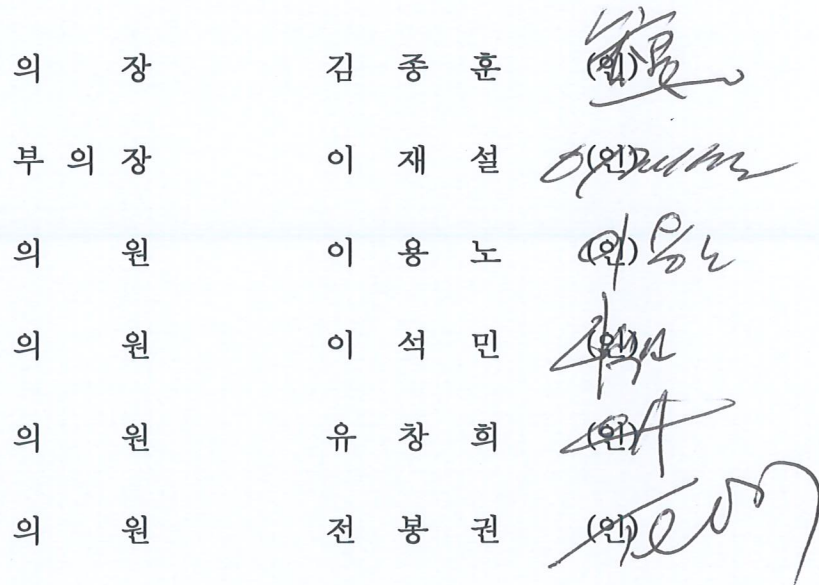 의 장 김 종 훈 (인)
부 의 장 이 재 설 (인)
의 원 이 용 노 (인) 이용노
의 원 이 석 민 (인)
의 원 유 창 희 (인)
의 원 전 봉 권 (인)